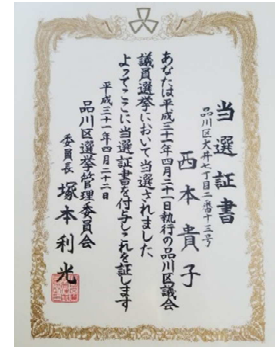 当選証書
品川区大井七丁目二番十三号
西本貴子
あなたは平成三十一年四月二十一日執行の品川区議会
議員選挙において当選されました
よってここに当選証書を付与しこれを証します
平成三十一年四月二十二日
品川区選挙管理委員会
委員長 塚本利光